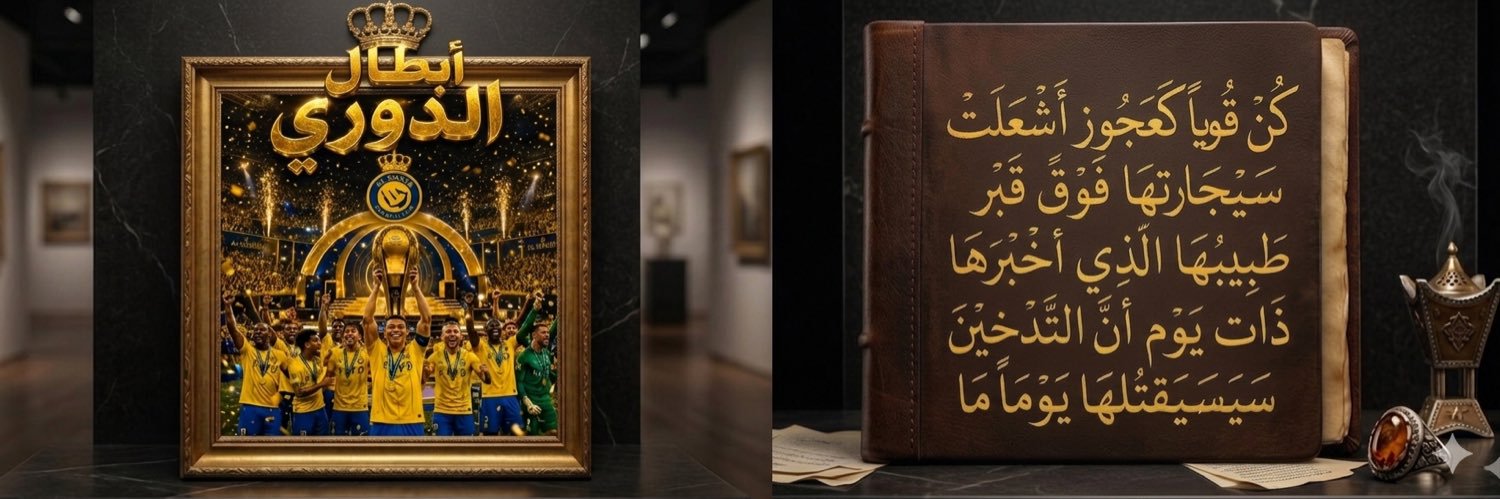 أبطال
الدوري
كُنْ قُوياً كَعَجُوز أَشْعَلَت
سَيْجَارتهَا فَوْقً قَبْر
طَبِيبُهَا الّذِي أخْبْرَهَا
ذَات يَوْم أنَّ التَّدْخيْنَ
سَيَسَيَقتُلهَا يَوْماً مَا